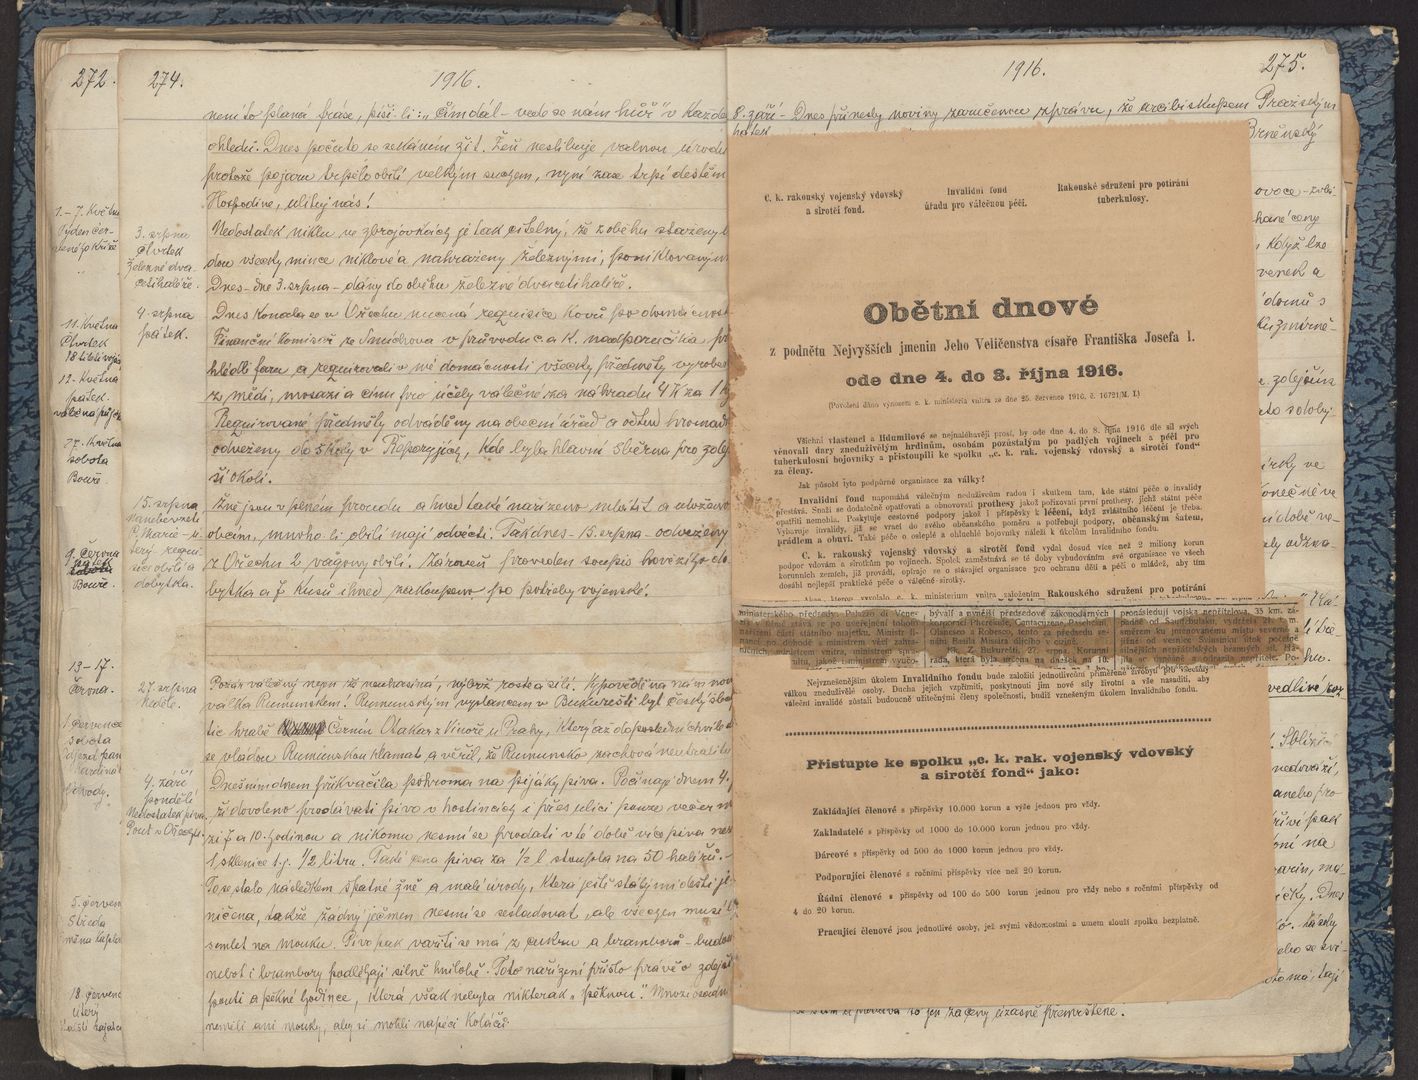 272.
274.
1916.
není to planá fráse, píši-li: „Čím dál - vede se nám hůř" v každé
ohledu. Dnes počato se sekáním žit. Žeň neslibuje valnou úrodu
protože zjara trpělo obilí velkým suchem, nyní zase trpí deštěm
Hospodine, ulituj nás!
1.-7. Květn
Týden Čer-
veného kříže
3. srpna
čtvrtek
Železné dva-
cetihaléře.
Nedostatek niklu ve zbrojovkách je tak citelný, že z oběhu staženy b
dou všecky mince niklové a nahraženy železnými, poniklovaným
Dnes - dne 3. srpna - dány do oběhu železné dvacetihaléře.
4. srpna
pátek.
11. Května
Čtvrtek
12. Května
pátek.
27. Května
sobota
Bouře.
Dnes konala se v Ořechu nucená requisice kovů po domácnost
Finanční komisař ze Smíchova v průvodu c. a k. nadporučíka pr
hlédli faru a requirovali v mé domácnosti všecky předměty vyrobe
z mědi, mosazi a cínu pro účely válečné za náhradu 4 K za 1 kg
Requirované předměty odváděny na obecní úřad a odtud hromad
odvezeny do školy v Řeporyjích, kde byla hlavní sběrna pro zdej
ší okolí.
15. srpna
Nanebevzetí
P. Marie - ú-
terý requi-
sice obilí a
dobytka.
9. června
pátek
sobota
Bouře.
Žně jsou v plném proudu a hned také nařízeno mlátit a uloženo
obcím, mnoho-li obilí mají odvésti. Tak dnes - 15. srpna - odvezeny
z Ořechu 2 vagony obilí. Zároveň proveden soupis hovězího do-
bytka a 7 kusů ihned zakoupeno pro potřeby vojenské.
13-17.
Června.
27. srpna
neděle.
1. července
sobota
Požár válečný nejen že neuhasíná, nýbrž roste a sílí. Vypověděla nám nov
válka Rumunskem! Rumunským vyslancem v Bukurešti byl český šlech
tic hrabě Černín Otakar z Vinoře u Prahy, který až do poslední chvíle d
se vládou Rumunskou klamat a věřil, že Rumunsko zachová neutralitu
4. září
pondělí
Nedostatek piva.
Pout v Ořechu.
Dnešním dnem přikvačila pohroma na pijáky piva. Počínaje dnem 4.
ří dovoleno prodávati pivo v hostincích i přes ulici pouze večer m
zi 7 a 10. hodinou a nikomu nesmí se prodati v té době více piva než
1 sklenice t.j. 1/2 litru. Také cena piva za 1/2 l stoupla na 50 haléřů. -
To se stalo následkem špatné žně a malé úrody, která ještě stálými dešti je
ničena, takže žádný ječmen nesmí se sladovat, ale všechen musí
semlet na mouku. Pivo pak vařiti se má z cukru a bramborů - budou
neboť i brambory podléhají silné hnilobě. Toto nařízení přišlo právě o zdejší
pouti a pěkné hodince, která však nebyla nikterak „pěknou". Mnozí osadn
neměli ani mouky, aby si mohli napéci koláčů
5. červen
Středa
18. červenc
Úterý
1916.
275.
8. září - Dnes přinesly noviny zaručenou zprávu, že arcibiskupem Pražským
Brněnský
C. k. rakouský vojenský vdovský
a sirotčí fond.
Invalidní fond
úřadu pro válečnou péči.
Rakouské sdružení pro potírání
tuberkulosy.
Obětní dnové
z podnětu Nejvyšších jmenin Jeho Veličenstva císaře Františka Josefa I.
ode dne 4. do 8. října 1916.
(Povolení dáno výnosem c. k. ministeria vnitra ze dne 25. července 1916, č. 16721/M. I.)
Všichni vlastenci a lidumilové se nejnaléhavěji prosí, by ode dne 4. do 8. října 1916 dle sil svých
věnovali dary zneduživělým hrdinům, osobám pozůstalým po padlých vojínech a péči pro
tuberkulosní bojovníky a přistoupili ke spolku „c. k. rakouský vojenský vdovský a sirotčí fond"
za členy.
Jak působí tyto podpůrné organisace za války?
Invalidní fond napomáhá válečným neduživcům radou i skutkem tam, kde státní péče o invalidy
přestává. Snaží se dodatečně opatřovati a obnovovati prothesy jakož pořizovati první prothesy, jichž státní péče
opatřiti nemohla. Poskytuje cestovné podpory jakož i příspěvky k léčení, když zvláštního léčení je třeba.
Vybavuje invalidy, již se vrátí do svého občanského poměru a potřebují podpory, občanským šatem,
prádlem a obuví. Také péče o oslepé a ohluchlé bojovníky náleží k úkolům invalidního fondu.
C. k. rakouský vojenský vdovský a sirotčí fond vydal dosud více než 2 miliony korun
podpor vdovám a sirotkům po vojínech. Spolek zaměstnává se té doby vybudováním své organisace ve všech
korunních zemích, již provádí, opíraje se o stávající organisace pro ochranu dětí a péči o mládež, aby tím
dosáhl nejlepší praktické péče o válečné sirotky.
vyvolalo c. k. ministerium vnitra založením Rakouského sdružení pro potírání
ministerského předsedy. Palazzo di Vene-
bývalí a nynější předsedové zákonodárných
korporací Pherekide, Cantacuzene, Poschean
Olanesco a Robesco, tento za předsedu se-
nátu Basila Missira dlícího v cizině.
Z Bukurešti, 27. srpna. Korunní
rada, která byla svolána na dnešek na 10.
pronásledují vojska nepřítelova, 35 km. zá-
Nejvznešenějším úkolem Invalidního fondu bude založiti jednotlivcům přiměřené živobytí pro všechny
válkou zneduživělé osoby. Ducha jejich vzpřímiti, poskytnouti jim nové síly životní a vše nasaditi, aby
váleční invalidé zůstali budoucně užitečnými členy společnosti, budiž vznešeným úkolem invalidního fondu.
Přistupte ke spolku „c. k. rak. vojenský vdovský
a sirotčí fond" jako:
Zakládající členové s příspěvky 10.000 korun a výše jednou pro vždy.
Zakladatelé s příspěvky od 1000 do 10.000 korun jednou pro vždy.
Dárcové s příspěvky od 500 do 1000 korun jednou pro vždy.
Podporující členové s ročními příspěvky více než 20 korun.
Řádní členové s příspěvky od 100 do 500 korun jednou pro vždy nebo s ročními příspěvky od
4 do 20 korun.
Pracující členové jsou jednotlivé osoby, jež svými vědomostmi a umem slouží spolku bezplatně.
to jen za ceny úžasně přemrštěné.